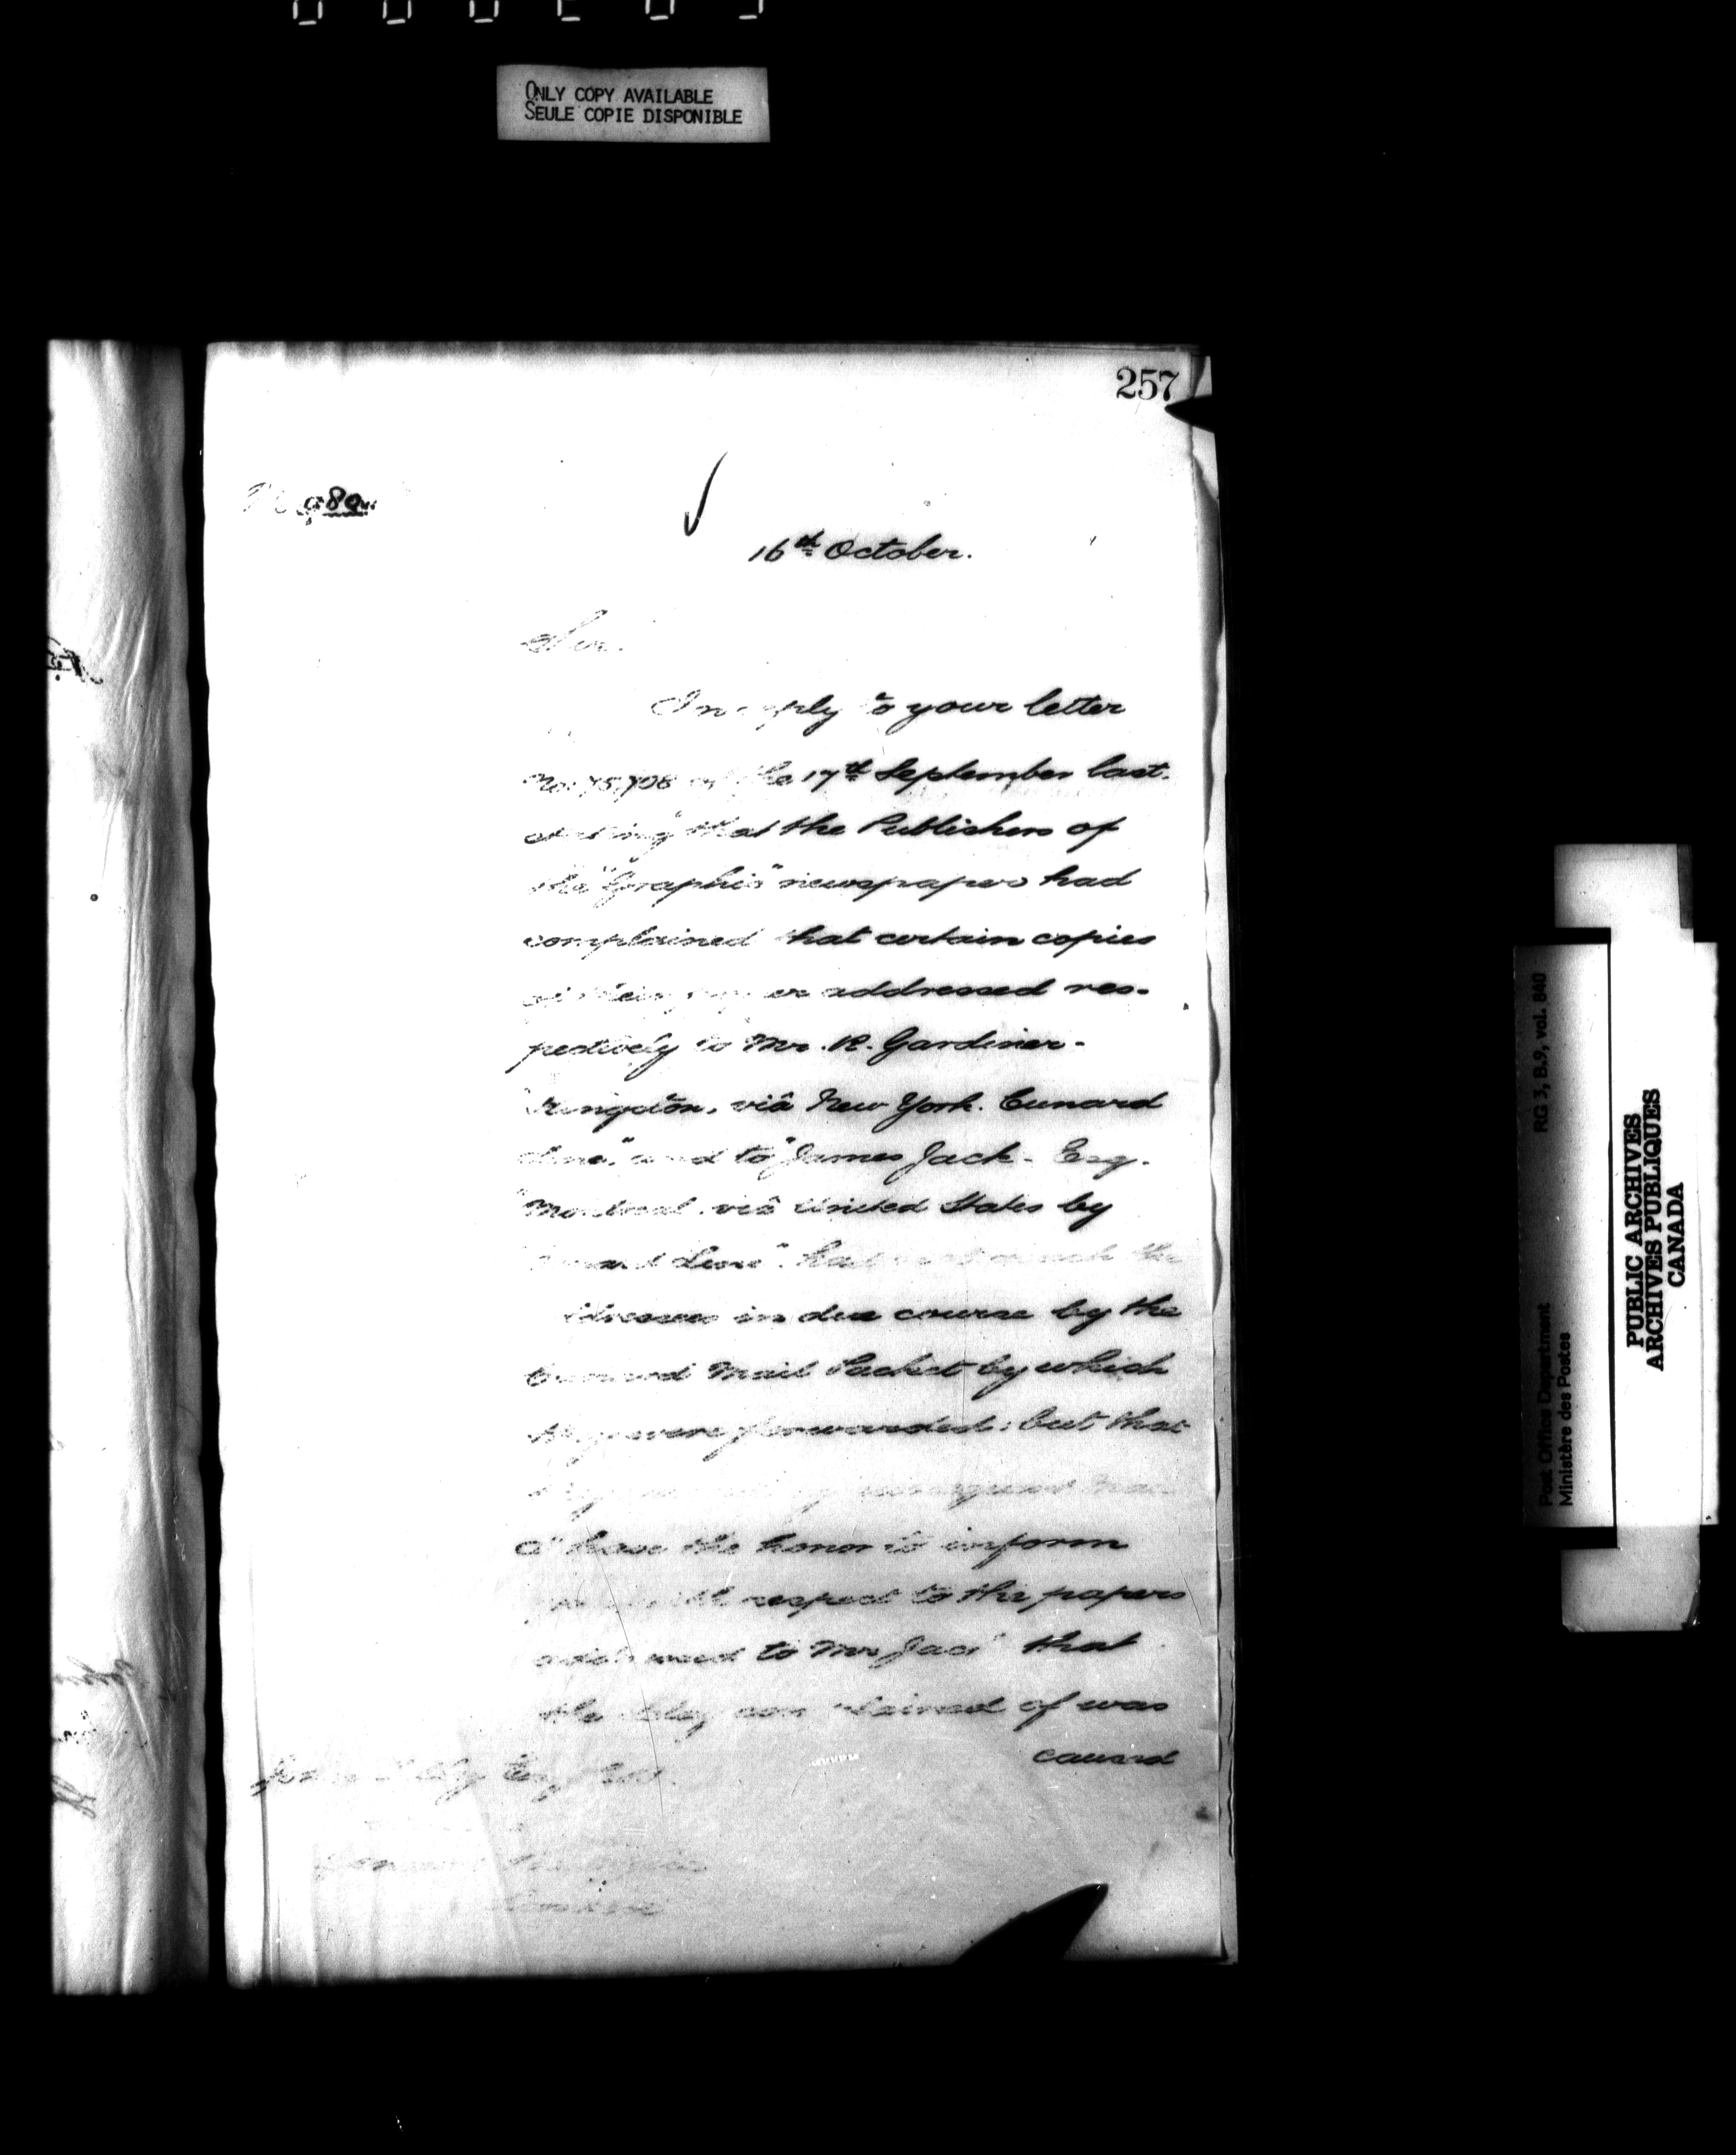 ONLY COPY AVAILABLE
SEULE COPIE DISPONIBLE
257
980
16th October.
Sir.
In reply to your letter
No. 75,708 of the 17th September last.
stating that the Publishers of
the "Graphic" newspaper had
complained that certain copies
of their paper addressed res-
pectively to Mr. R. Gardiner-
Kingston, viâ New York. Cunard
Line", and to "James Jack. Esq.
"Montreal. viâ United States by
Cunard Line". had not reach the
in due course by the
Cunard Mail Packet by which
they were forwarded: but that
I have the honor to inform
you with respect to the papers
addressed to Mr Jack that
the delay complained of was
caused
John Tilley Esq
General Post Office
London
RG 3, B.9, vol. 840
Post Office Department
Ministère des Postes
PUBLIC ARCHIVES
ARCHIVES PUBLIQUES
CANADA